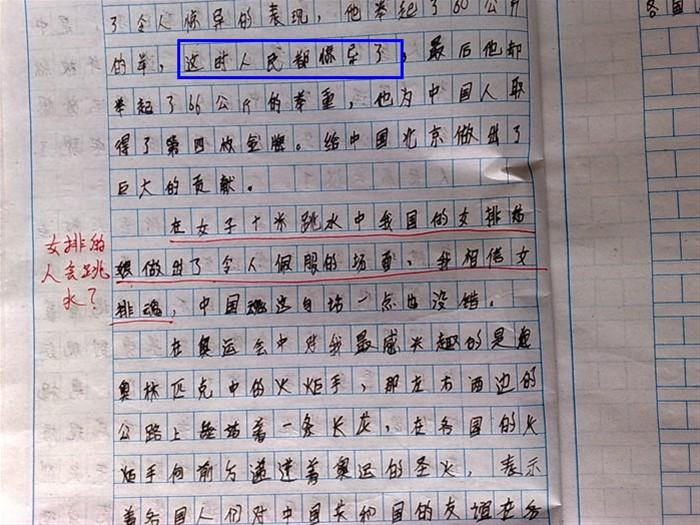 了令人惊异的表现，他举起了60公斤
的举，这时人民都惊异了，最后他却
举起了66公斤的举重，他为中国人取
得了第四枚金牌。给中国北京做出了
巨大的贡献。
在女子十米跳水中我国的女排姑
娘做出了令人佩服的场面，我相信女
排魂，中国魂这句话一点也没错。
女排的
人会跳
水？
在奥运会中对我最感兴趣的是
奥林匹克中的火炬手，那左右两边的
公路上站着一条长龙，在各国的火
炬手向前方递送着奥运的圣火，表示
着各国人们对中国共和国的友谊在
各国